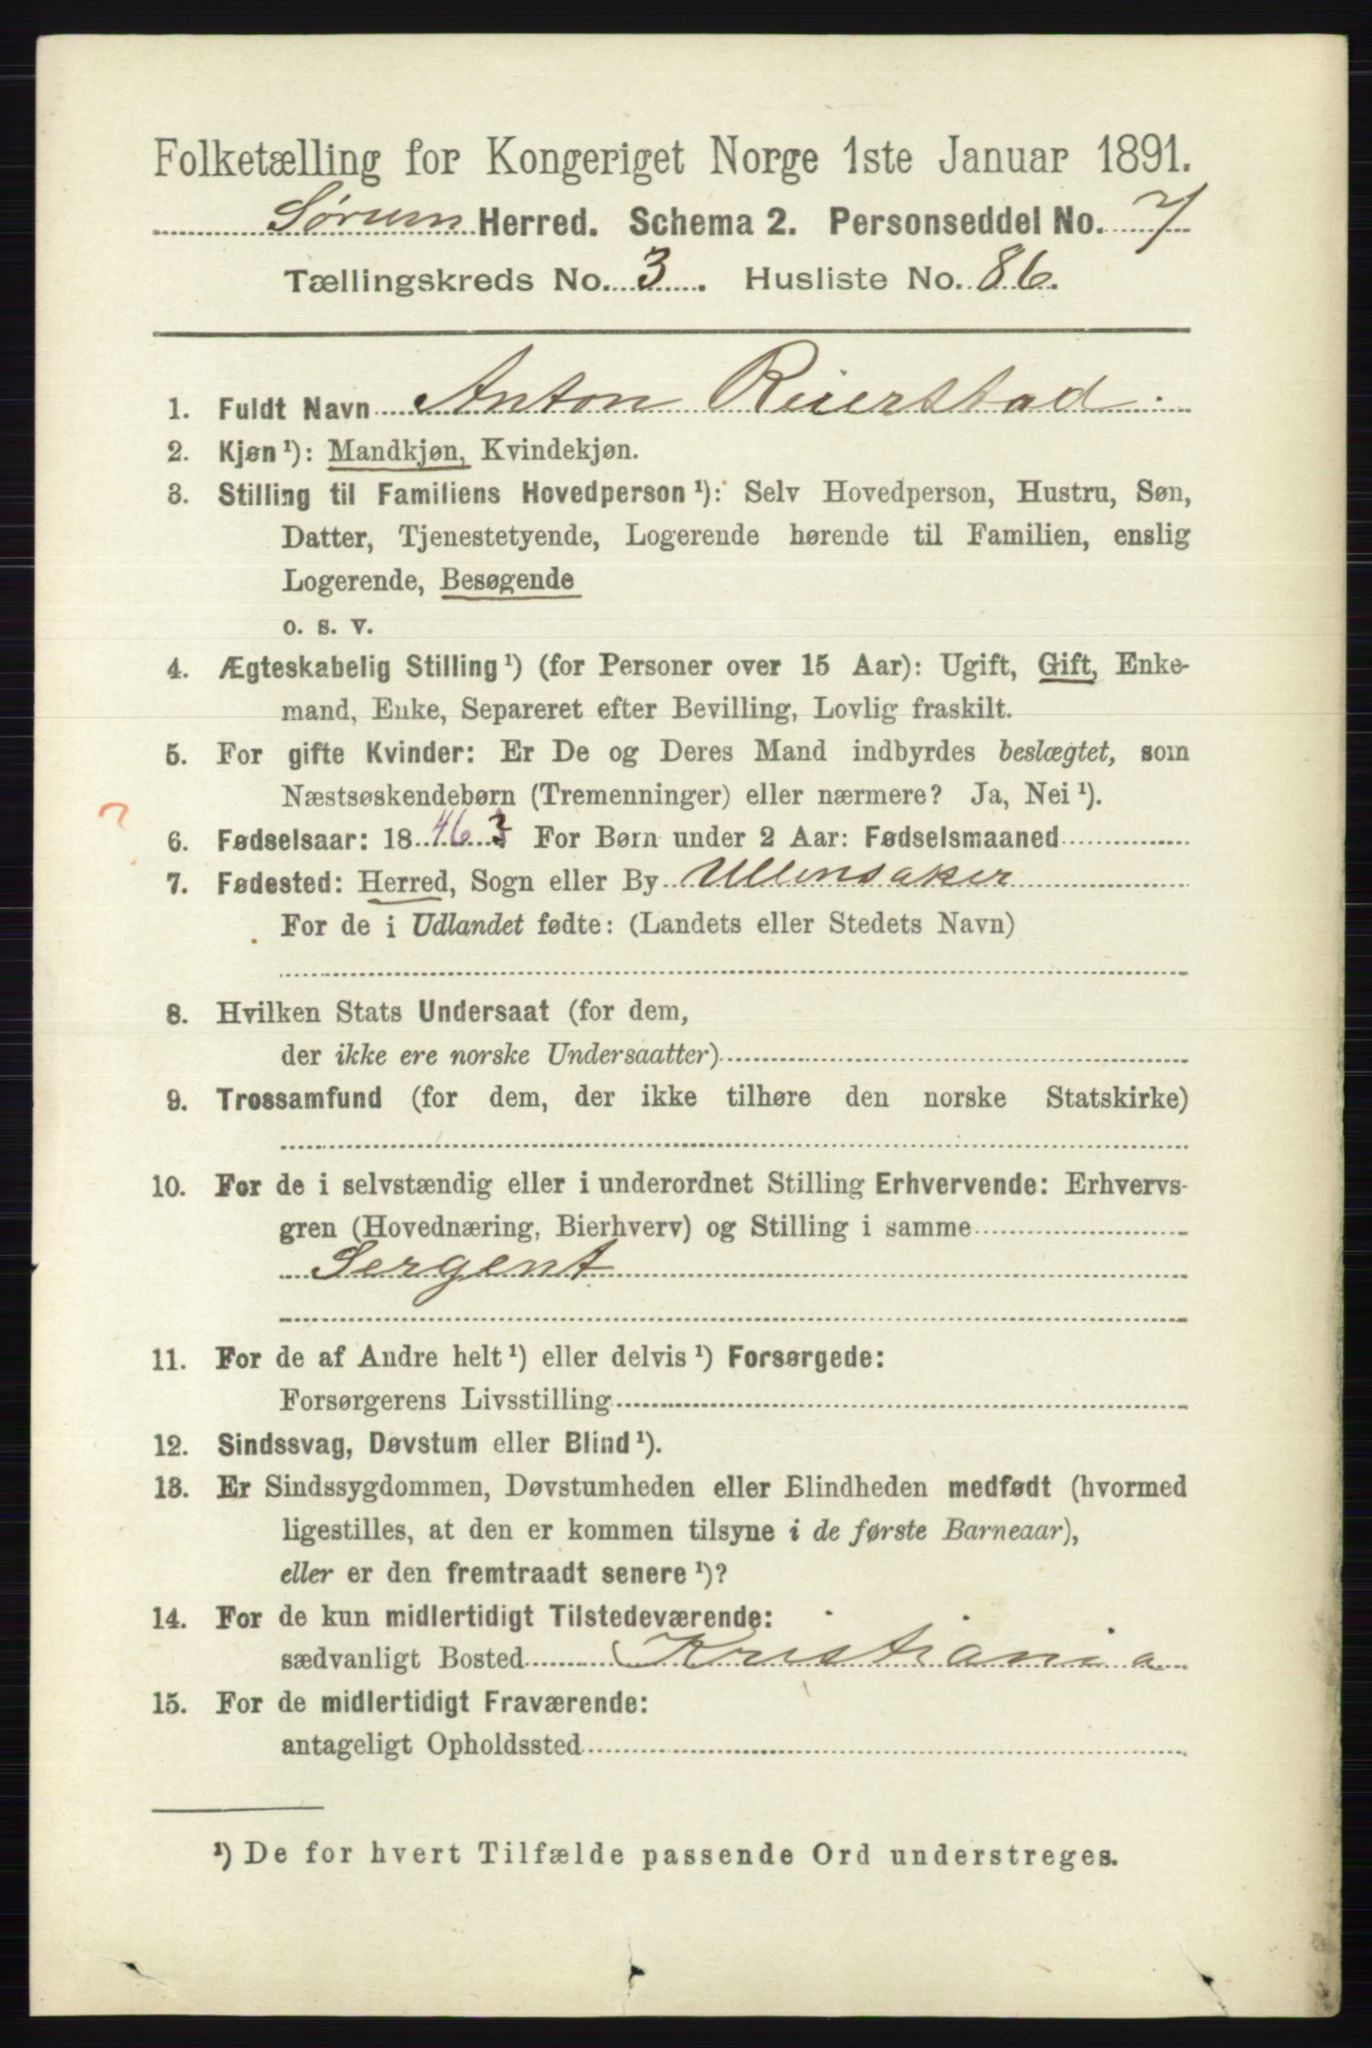 Folketælling for Kongeriget Norge 1ste Januar 1891.
Sørum Herred. Schema 2. Personseddel No. 7
Tællingskreds No. 3. Husliste No. 86.
1. Fuldt Navn Anton Reierstad.
2. Kjøn¹): Mandkjøn, Kvindekjøn.
3. Stilling til Familiens Hovedperson¹): Selv Hovedperson, Hustru, Søn,
Datter, Tjenestetyende, Logerende hørende til Familien, enslig
Logerende, Besøgende
o. s. v.
4. Ægteskabelig Stilling¹) (for Personer over 15 Aar): Ugift, Gift, Enke-
mand, Enke, Separeret efter Bevilling, Lovlig fraskilt.
5. For gifte Kvinder: Er De og Deres Mand indbyrdes beslægtet, som
Næstsøskendebørn (Tremenninger) eller nærmere? Ja, Nei¹).
6. Fødselsaar: 1846 ? For Børn under 2 Aar: Fødselsmaaned
7. Fødested: Herred, Sogn eller By Ullensaker
For de i Udlandet fødte: (Landets eller Stedets Navn)
8. Hvilken Stats Undersaat (for dem,
der ikke ere norske Undersaatter)
9. Trossamfund (for dem, der ikke tilhøre den norske Statskirke)
10. For de i selvstændig eller i underordnet Stilling Erhvervende: Erhvervs-
gren (Hovednæring, Bierhverv) og Stilling i samme
Sergent
11. For de af Andre helt¹) eller delvis¹) Forsørgede:
Forsørgerens Livsstilling
12. Sindssvag, Døvstum eller Blind¹).
13. Er Sindssygdommen, Døvstumheden eller Blindheden medfødt (hvormed
ligestilles, at den er kommen tilsyne i de første Barneaar),
eller er den fremtraadt senere¹)?
14. For de kun midlertidigt Tilstedeværende:
sædvanligt Bosted Kristiania
15. For de midlertidigt Fraværende:
antageligt Opholdssted
¹) De for hvert Tilfælde passende Ord understreges.